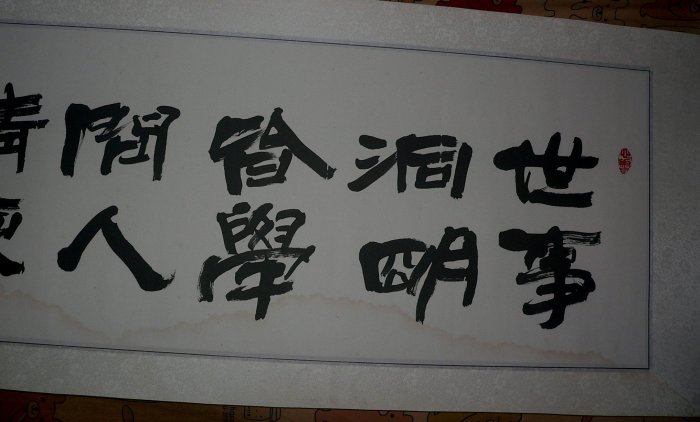 世事
洞明
皆學
問人